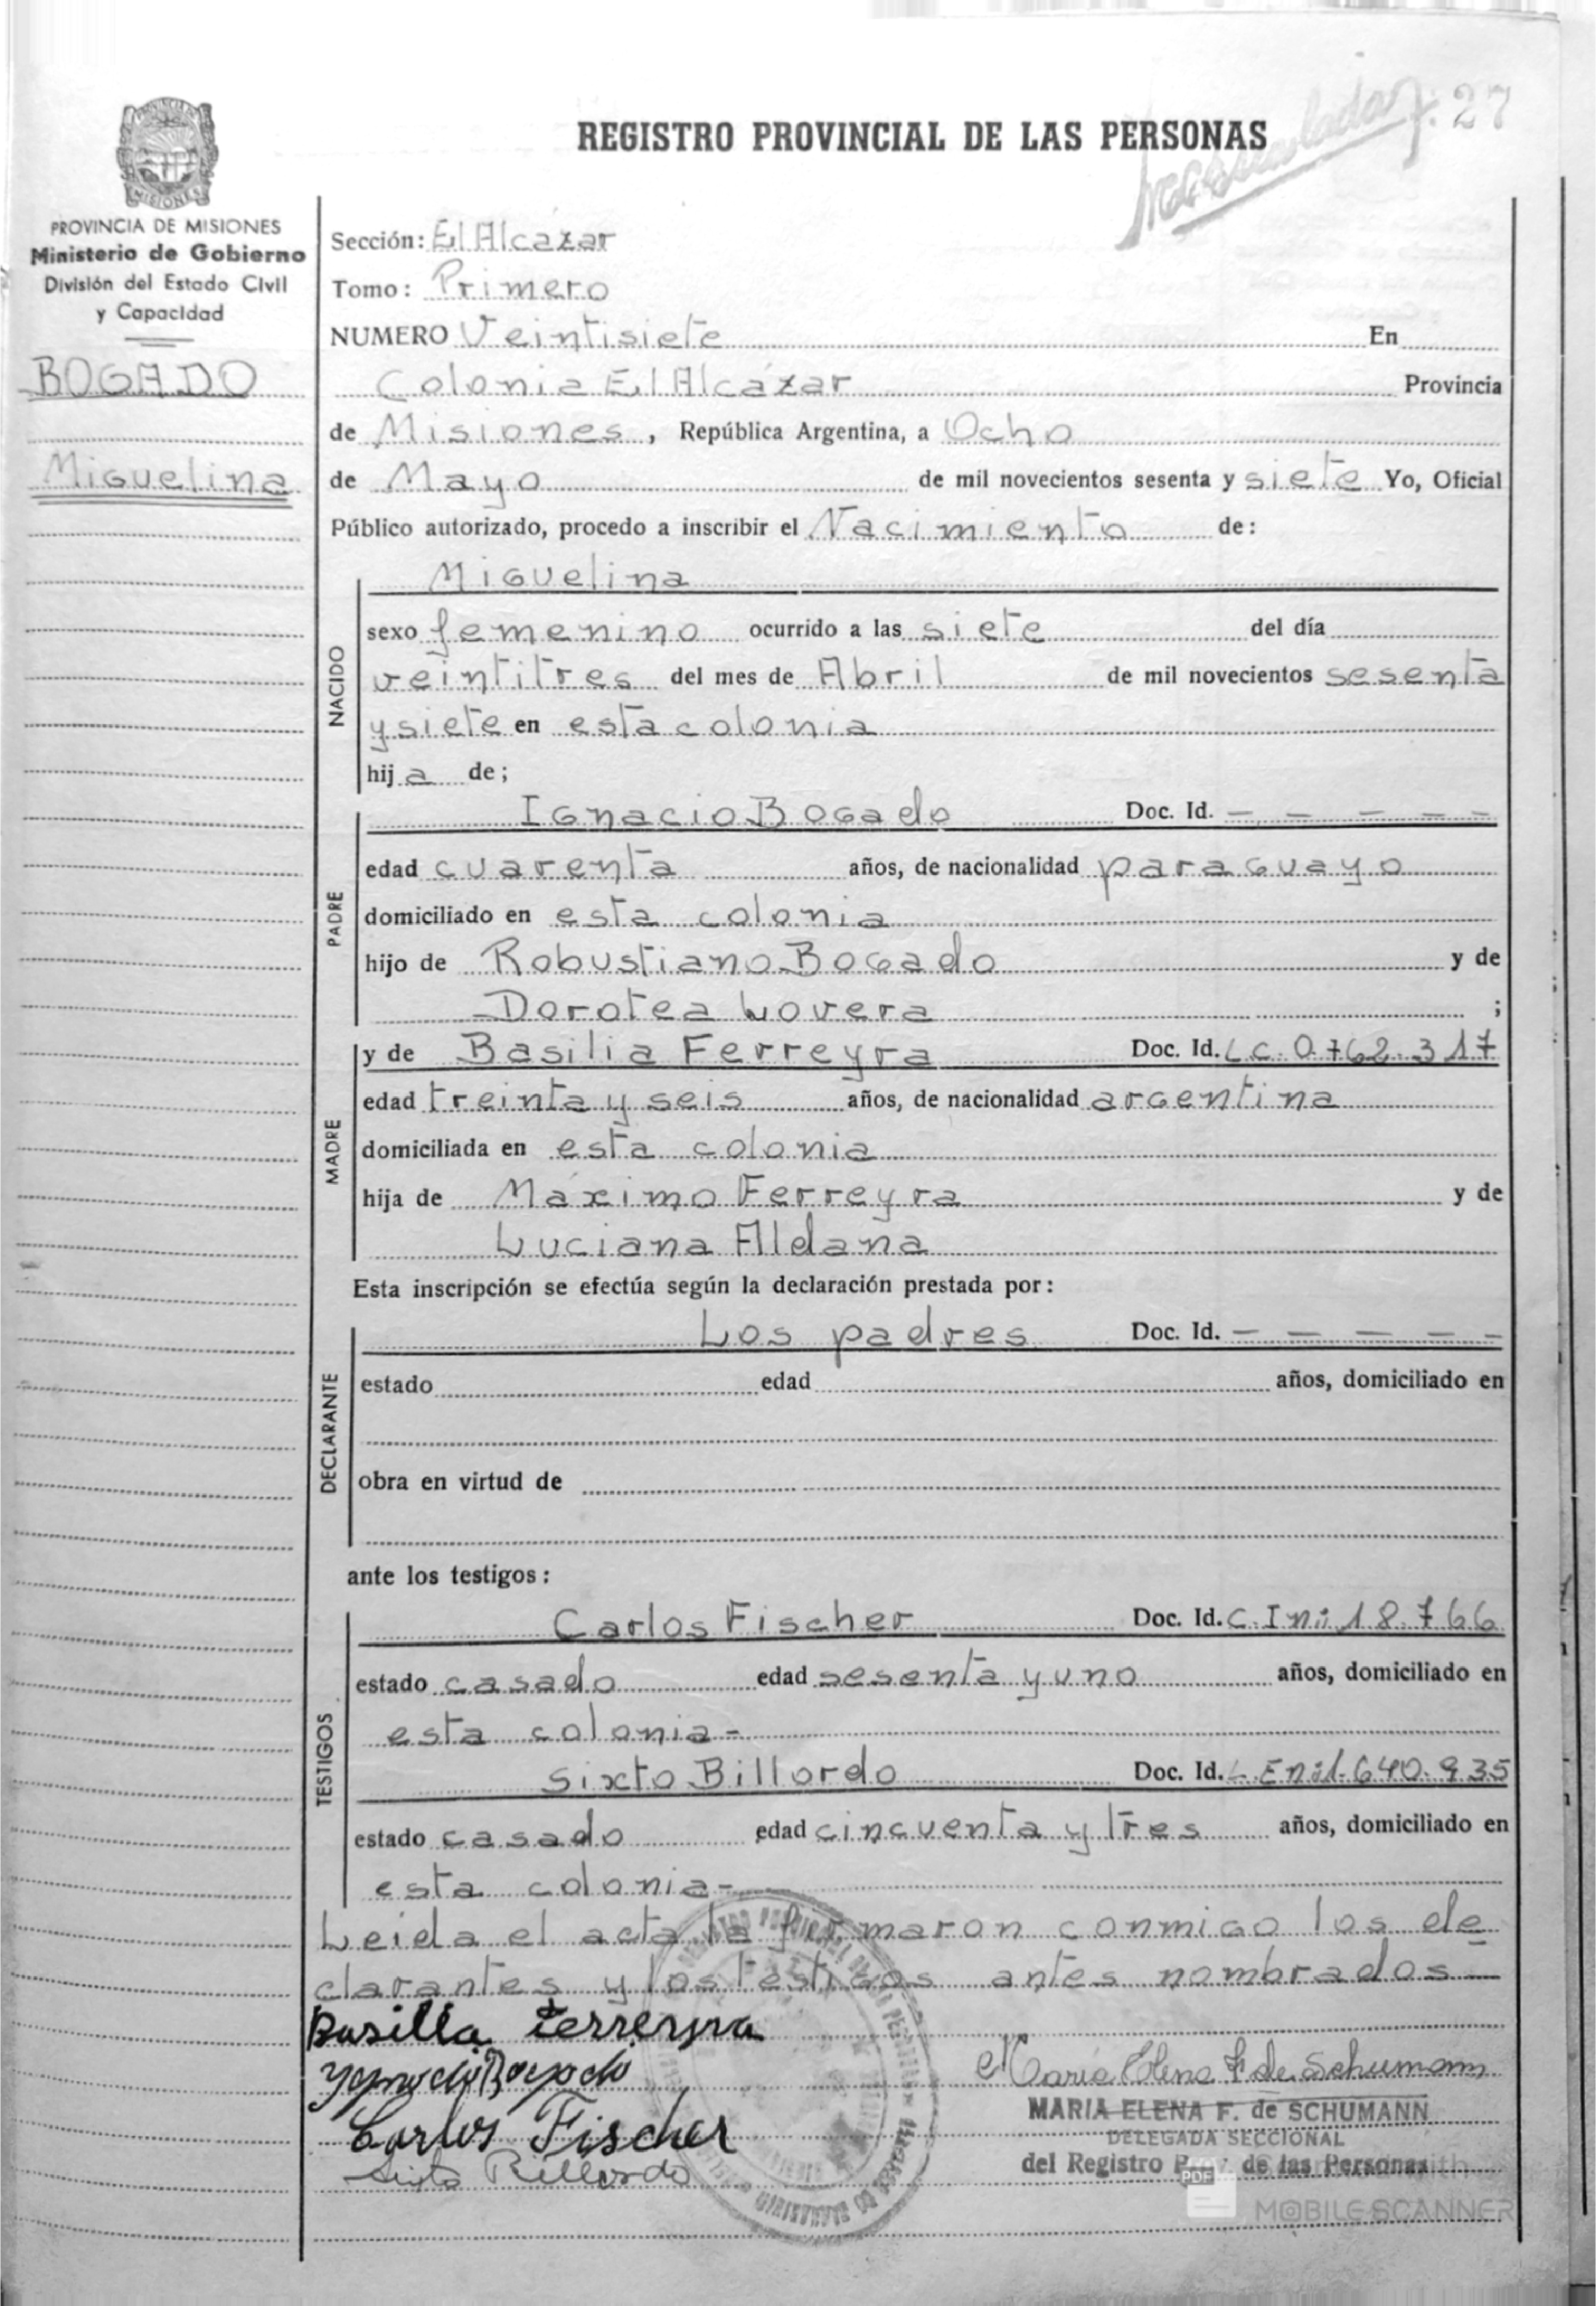 27
REGISTRO PROVINCIAL DE LAS PERSONAS
MISIONES
PROVINCIA DE MISIONES
Ministerio de Gobierno
División del Estado Civil
y Capacidad
BOGADO
Miguelina
Sección: El Alcázar
Tomo: Primero
NUMERO Veintisiete En
Colonia El Alcázar Provincia
de Misiones, República Argentina, a Ocho
de Mayo de mil novecientos sesenta y siete Yo, Oficial
Público autorizado, procedo a inscribir el Nacimiento de:
NACIDO
Miguelina
sexo femenino ocurrido a las siete del día
veintitres del mes de Abril de mil novecientos sesenta
y siete en esta colonia
hija de;
PADRE
Ignacio Bogado Doc. Id. — — — — —
edad cuarenta años, de nacionalidad paraguayo
domiciliado en esta colonia
hijo de Robustiano Bogado y de
Dorotea Lovera ;
MADRE
y de Basilia Ferreyra Doc. Id. L.C. 0.762.317
edad treinta y seis años, de nacionalidad argentina
domiciliada en esta colonia
hija de Máximo Ferreyra y de
Luciana Aldana
Esta inscripción se efectúa según la declaración prestada por:
DECLARANTE
Los padres Doc. Id. — — — — —
estado edad años, domiciliado en
obra en virtud de
ante los testigos:
TESTIGOS
Carlos Fischer Doc. Id. C.I nº 18.766
estado casado edad sesenta y uno años, domiciliado en
esta colonia-
Sixto Billordo Doc. Id. L.E nº 1.640.935
estado casado edad cincuenta y tres años, domiciliado en
esta colonia-
Leida el acta la firmaron conmigo los de
clarantes y los testigos antes nombrados—
Basilia Ferreyra
Ignacio Bogado
Carlos Fischer
Sixto Billordo
María Elena F. de Schumann
MARIA ELENA F. de SCHUMANN
DELEGADA SECCIONAL
del Registro Prov. de las Personas
PDF
MOBILE SCANNER